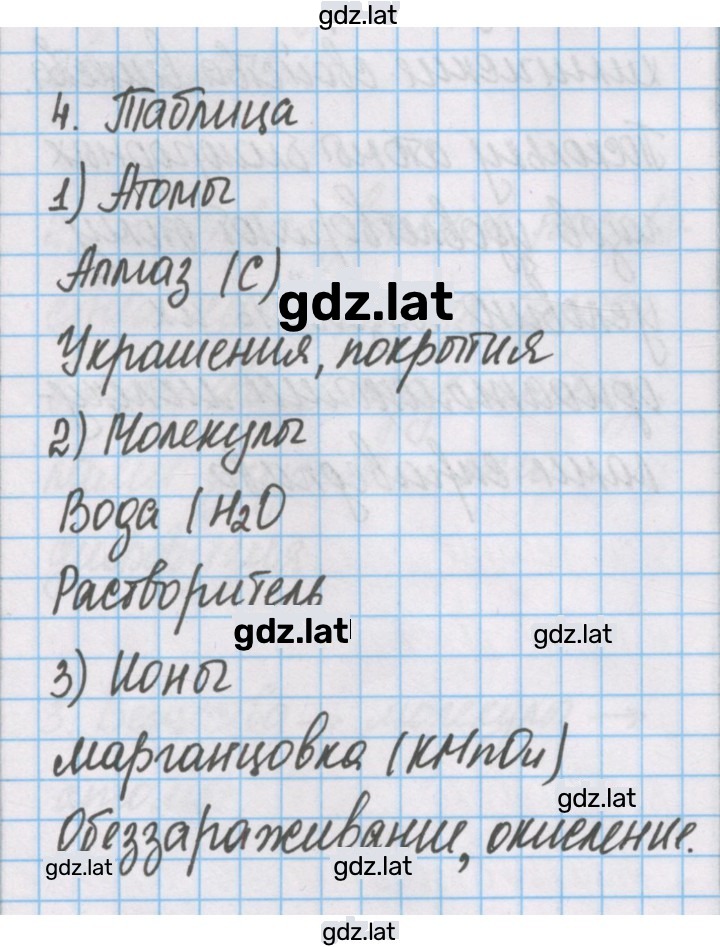 gdz.lat
4. Таблица
1) Атомы
Алмаз (C)
gdz.lat
Украшения, покрытия
2) Молекулы
Вода (H2O
Растворитель
gdz.lat gdz.lat
3) Ионы
Марганцовка (KMnO4)
gdz.lat
Обеззараживание, окисление.
gdz.lat gdz.lat
gdz.lat